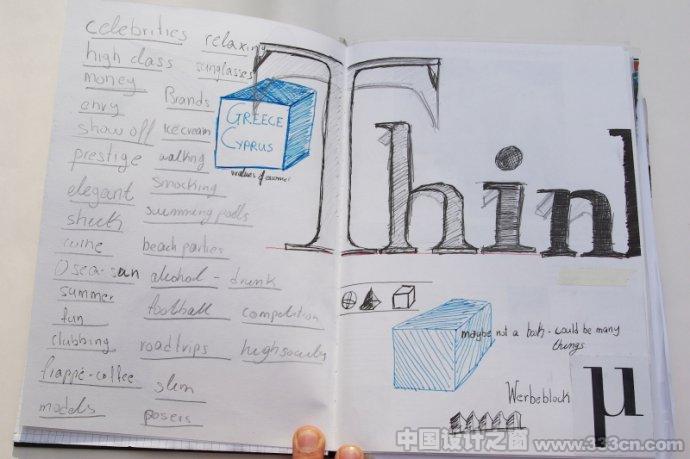 celebrities relaxing
high class sunglasses
money Brands
envy
show off Icecream
prestige walking
elegant smocking
swimming pools
wine beach parties
sea-sun alcohol - drunk
summer
fun football competition
clubbing roadtrips high society
frappè-coffee slim
models posers
GREECE
CYPRUS
values of summer
Thin
maybe not a book - could be many
things
Werbeblock
μ
中国设计之窗 www.333cn.com